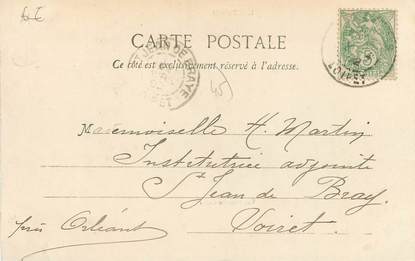 6€
CARTE POSTALE
Ce côté est exclusivement réservé à l'adresse.
ST JEAN DE BRAYE
LOIRET
45
Mademoiselle H. Martin
Institutrice adjointe
St Jean de Bray
près Orléans
Loiret